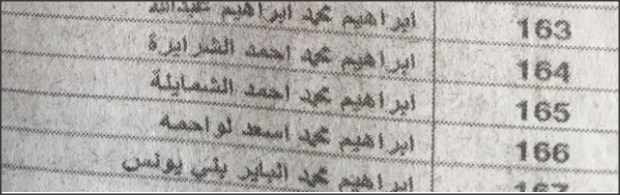 163 ابراهيم محمد ابراهيم عبدالله
164 ابراهيم محمد احمد الشرايرة
165 ابراهيم محمد احمد الشمايلة
166 ابراهيم محمد اسعد لواحمه
167 ابراهيم محمد الباير بني يونس